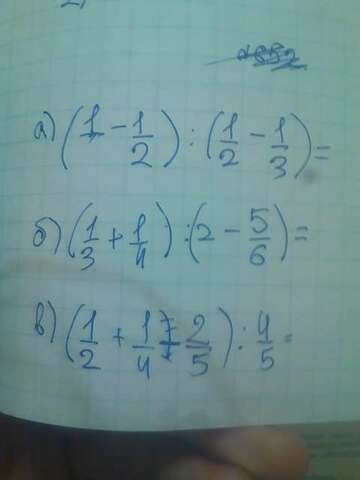 а) (1 - 1/2) : (1/2 - 1/3) =
б) (1/3 + 1/4) : (2 - 5/6) =
в) (1/2 + 1/4 + 2/5) : 4/5 =